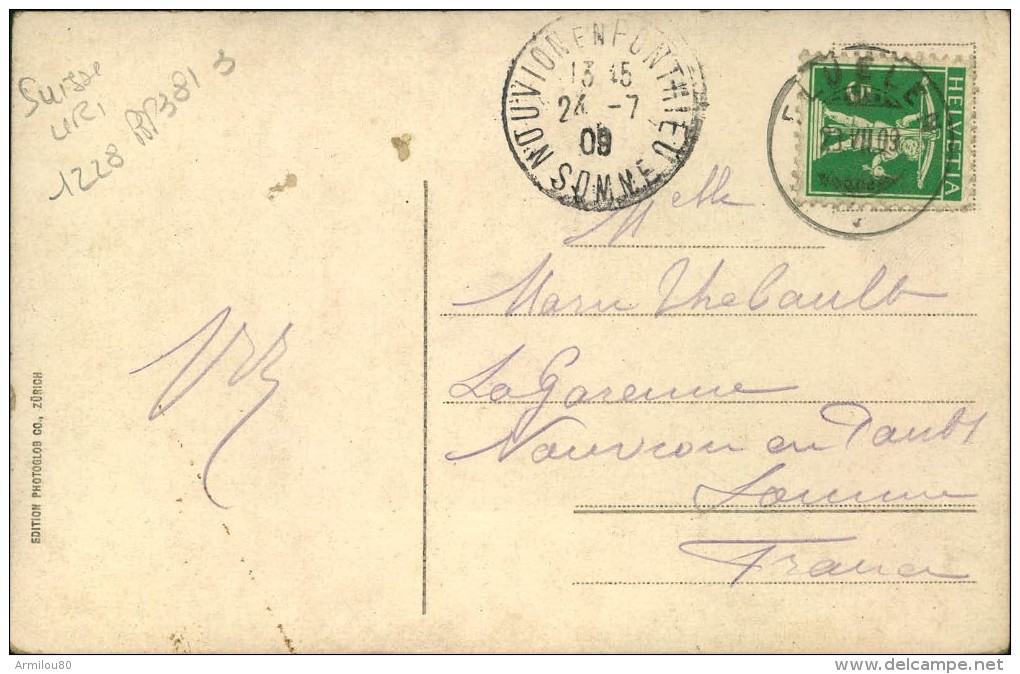 Suisse
URI
1228 PP381 3
NOUVION EN PONTHIEU
13 45
24 -7
09
SOMME
FLUELEN
VII.09
HELVETIA
Melle
Marie Thebault
La Garenne
Nouvion en
Somme
France
EDITION PHOTOGLOB CO., ZÜRICH
Armilou80
delcampe.net